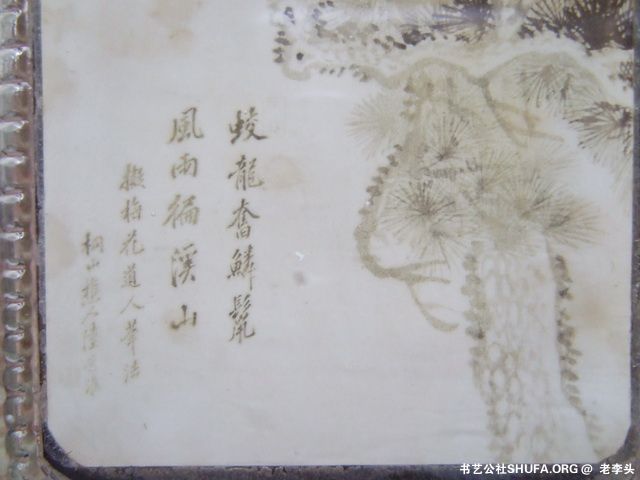 蛟龍奮鱗鬣
風雨徧溪山
擬梅花道人筆法
桐山樵人陸
书艺公社SHUFA.ORG @ 老李头